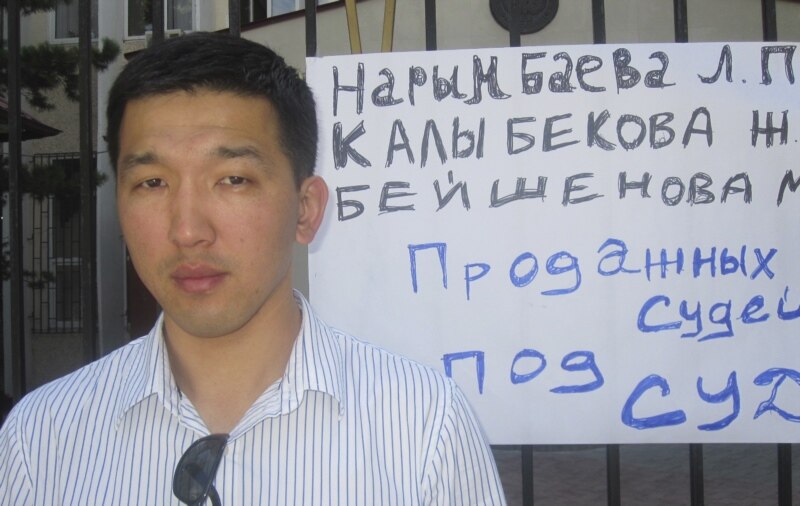 Нарымбаева Л.П
КАЛЫБЕКОВА Ж.
БЕЙШЕНОВА М
Продажных
судей
под
СУД